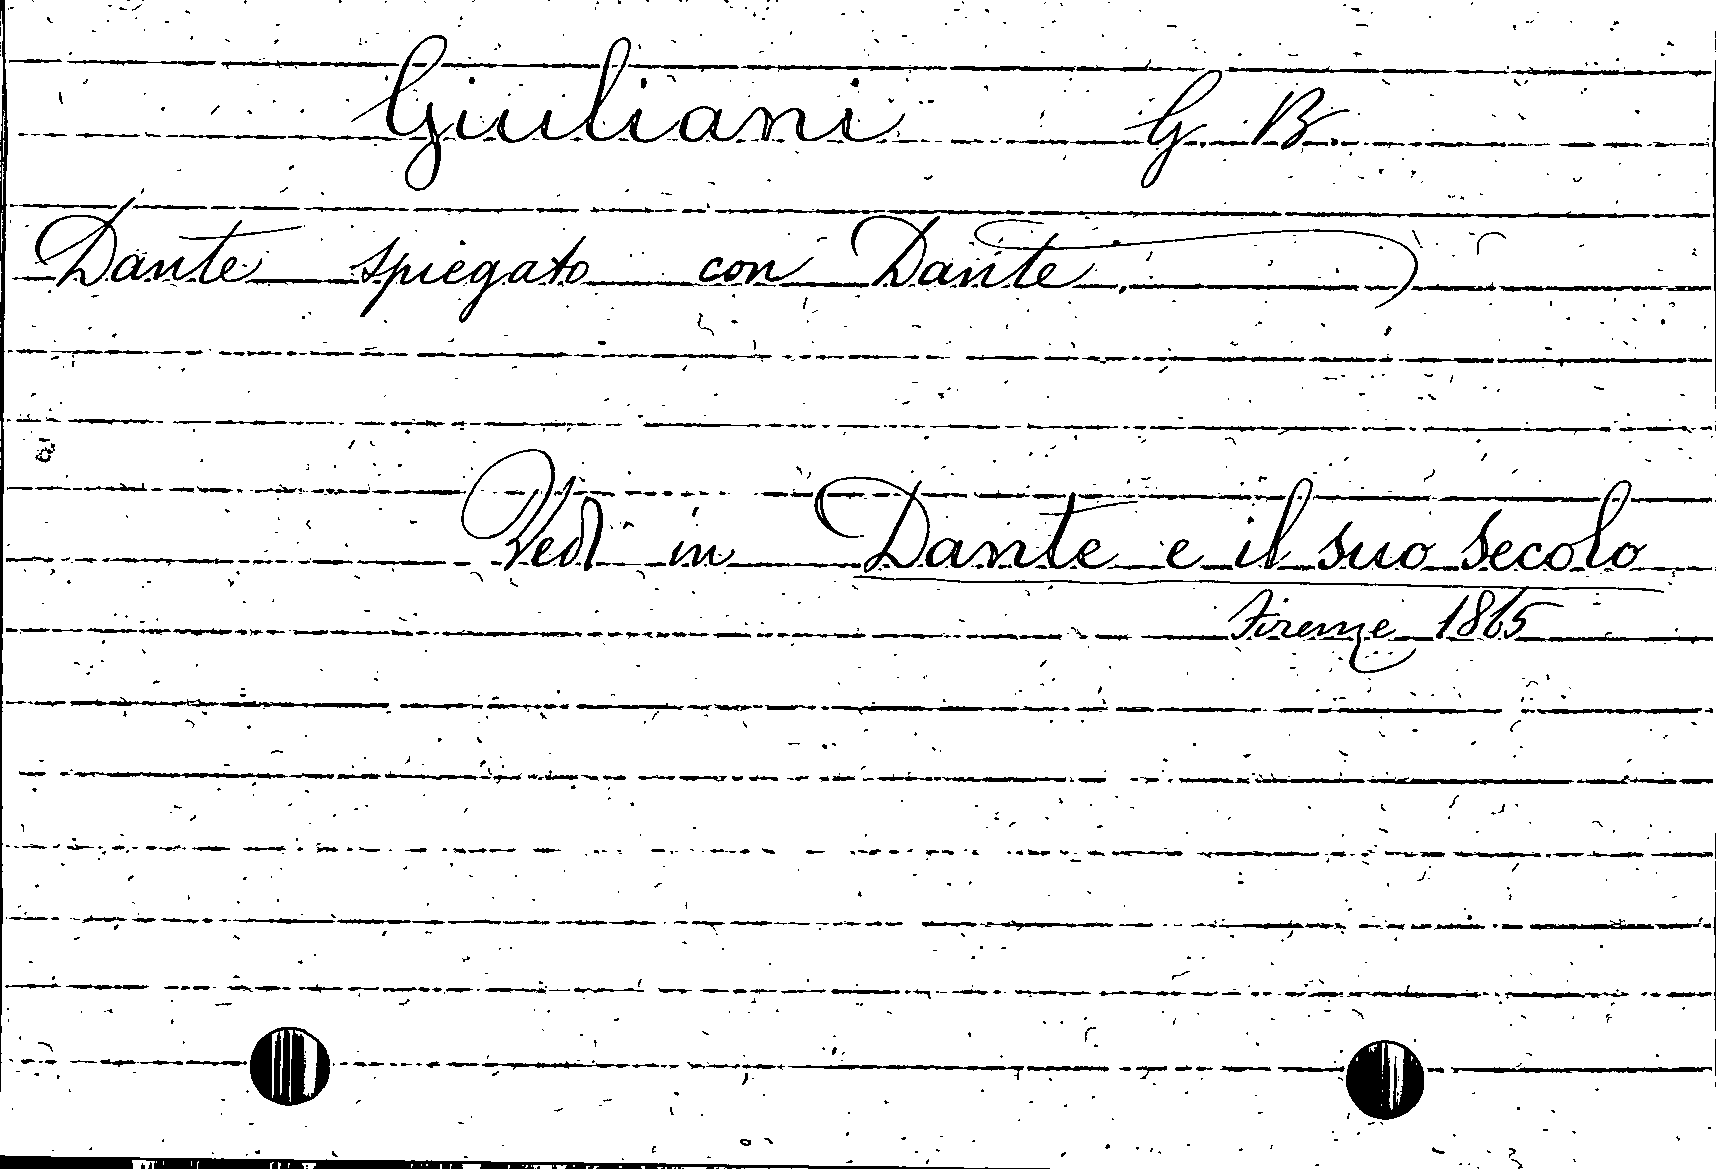 Giuliani G. B.
Dante spiegato con Dante.
Vedi in Dante e il suo secolo
Firenze 1865